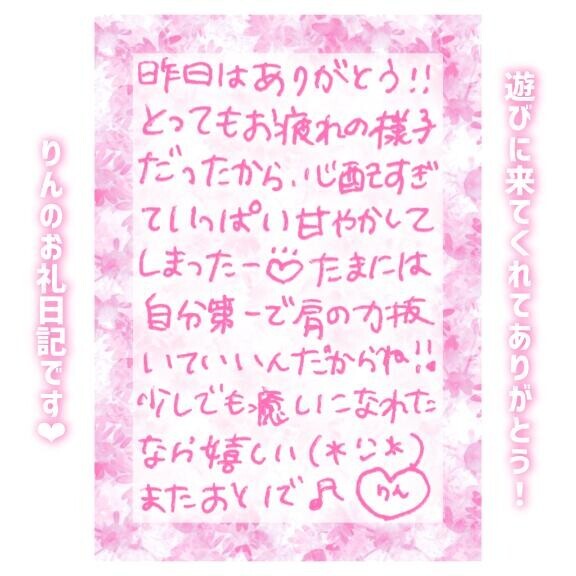 遊びに来てくれてありがとう！
昨日はありがとう!!
とってもお疲れの様子
だったから、心配すぎ
ていっぱい甘やかして
しまったー♡たまには
自分第一で肩の力抜
いていいんだからね!!
少しでも癒しになれた
なら嬉しい(*¨*)
またおとﾉで♬ りん
りんのお礼日記です❤